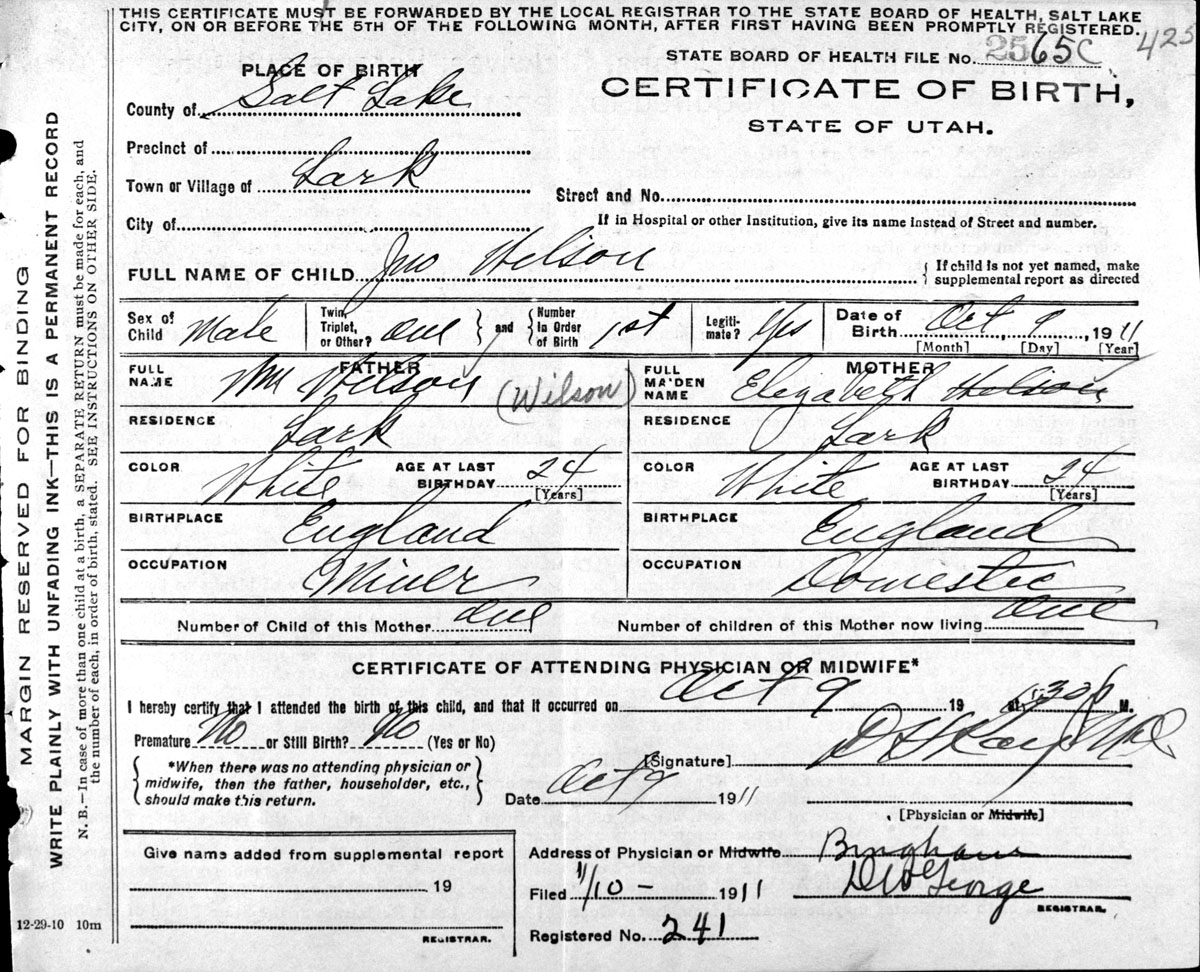 THIS CERTIFICATE MUST BE FORWARDED BY THE LOCAL REGISTRAR TO THE STATE BOARD OF HEALTH, SALT LAKE
CITY, ON OR BEFORE THE 5TH OF THE FOLLOWING MONTH, AFTER FIRST HAVING BEEN PROMPTLY REGISTERED.
425
STATE BOARD OF HEALTH FILE No. 2565C
PLACE OF BIRTH
CERTIFICATE OF BIRTH,
County of Salt Lake
STATE OF UTAH.
Precinct of
Town or Village of Lark
Street and No.
City of
If in Hospital or other Institution, give its name instead of Street and number.
FULL NAME OF CHILD Jno Wilson
{ If child is not yet named, make
supplemental report as directed
Sex of Child Male
Twin, Triplet, or Other? one
and
Number in Order of Birth 1st
Legiti-mate? Yes
Date of Birth Oct 9, 1911
[Month] [Day] [Year]
FATHER
FULL NAME Wm Wilson (Wilson)
MOTHER
FULL MAIDEN NAME Elizabeth Wilson
RESIDENCE Lark
RESIDENCE Lark
COLOR White AGE AT LAST BIRTHDAY 24 [Years]
COLOR White AGE AT LAST BIRTHDAY 24 [Years]
BIRTHPLACE England
BIRTHPLACE England
OCCUPATION Miner
OCCUPATION Domestic
Number of Child of this Mother one
Number of children of this Mother now living one
CERTIFICATE OF ATTENDING PHYSICIAN OR MIDWIFE*
I hereby certify that I attended the birth of this child, and that it occurred on Oct 9 19 at 30 P M.
Premature No or Still Birth? No (Yes or No)
[Signature]
{ *When there was no attending physician or
midwife, then the father, householder, etc.,
should make this return. }
Date Oct 9 1911
[Physician or Midwife]
Give name added from supplemental report
Address of Physician or Midwife Bingham
19
Filed 11/10- 1911 George
REGISTRAR.
REGISTRAR.
Registered No. 241
12-29-10 10m
MARGIN RESERVED FOR BINDING
WRITE PLAINLY WITH UNFADING INK—THIS IS A PERMANENT RECORD
N. B.—In case of more than one child at a birth, a SEPARATE RETURN must be made for each, and
the number of each, in order of birth, stated. SEE INSTRUCTIONS ON OTHER SIDE.